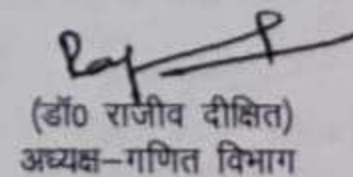 (डॉ0 राजीव दीक्षित)
अध्यक्ष–गणित विभाग